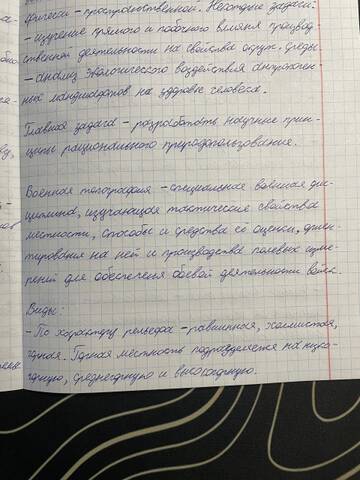 физеси-пространственной. Некоторые задачи:
- изучение прямого и побочного влияния производ-
ственной деятельности на свойства окруж. среды
- анализ экологического воздействия антропоген-
ных ландшафтов на здоровье человека.
Главная задача - разработать научные прин-
ципы рационального природопользования.
Военная топография - специальная военная дис-
циплина, изучающая тактические свойства
местности, способы и средства её оценки, ориен-
тирования на ней и производства полевых изме-
рений для обеспечения боевой деятельности войск.
Виды:
- По характеру рельефа - равнинная, холмистая,
горная. Горная местность подразделяется на низко-
горную, среднегорную и высокогорную.